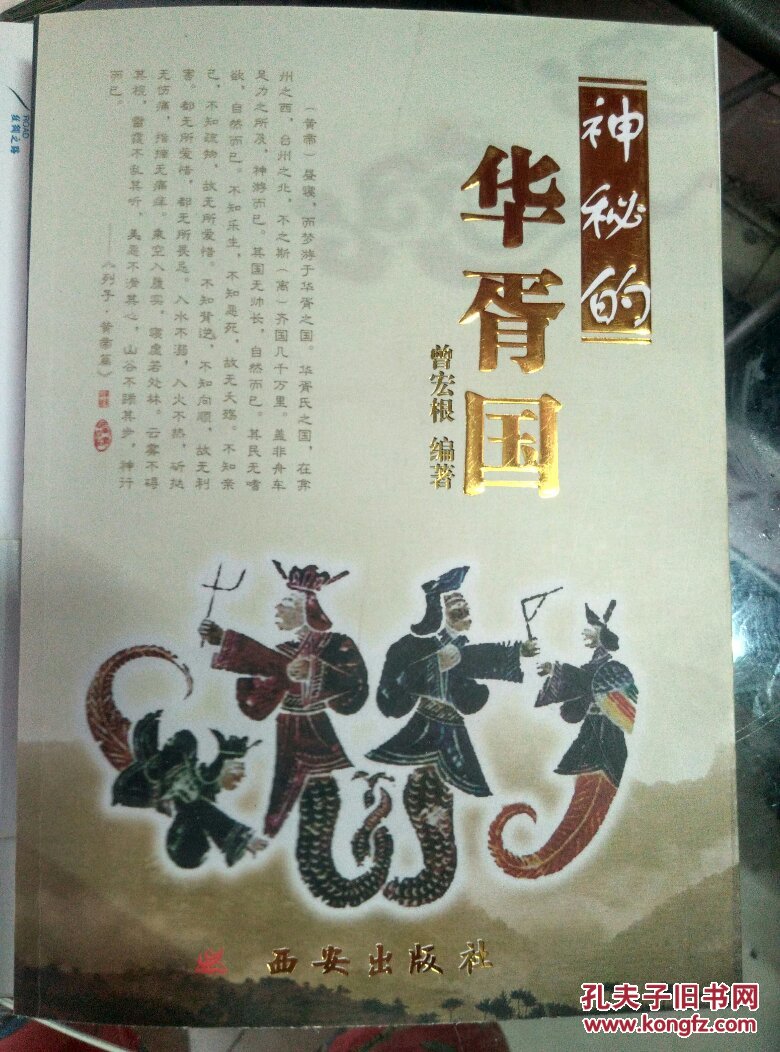 神秘的
华胥国
曾宏根 编著
（黄帝）昼寝，而梦游于华胥之国。华胥氏之国，在弇
州之西，台州之北，不之斯（离）齐国几千万里。盖非舟车
足力之所及，神游而已。其国无帅长，自然而已。其民无嗜
欲，自然而已。不知乐生，不知恶死，故无夭殇。不知亲
己，不知疏物，故无所爱惜。不知背逆，不知向顺，故无利
害。都无所爱惜，都无所畏忌。入水不溺，入火不热，斫挞
无伤痛，指擿无痛痒。乘空入履实，寝虚若处林。云雾不碍
其视，雷霆不乱其听，美恶不滑其心，山谷不踬其步，神行
而已。
——《列子·黄帝篇》
西安出版社
ROAD
丝绸之路
孔夫子旧书网
www.kongfz.com